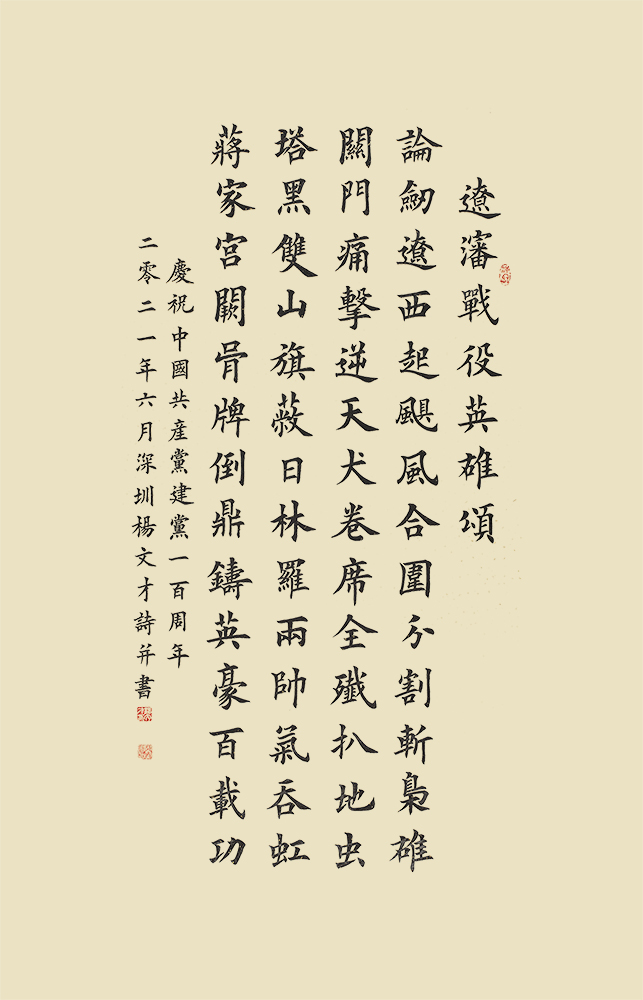 遼瀋戰役英雄頌
論劒遼西起颶風合圍分割斬梟雄
關門痛擊逆天犬卷席全殲扒地虫
塔黑雙山旗蔽日林羅兩帥氣吞虹
蔣家宮闕骨牌倒鼎鑄英豪百載功
慶祝中國共産黨建黨一百周年
二零二一年六月深圳楊文才詩并書